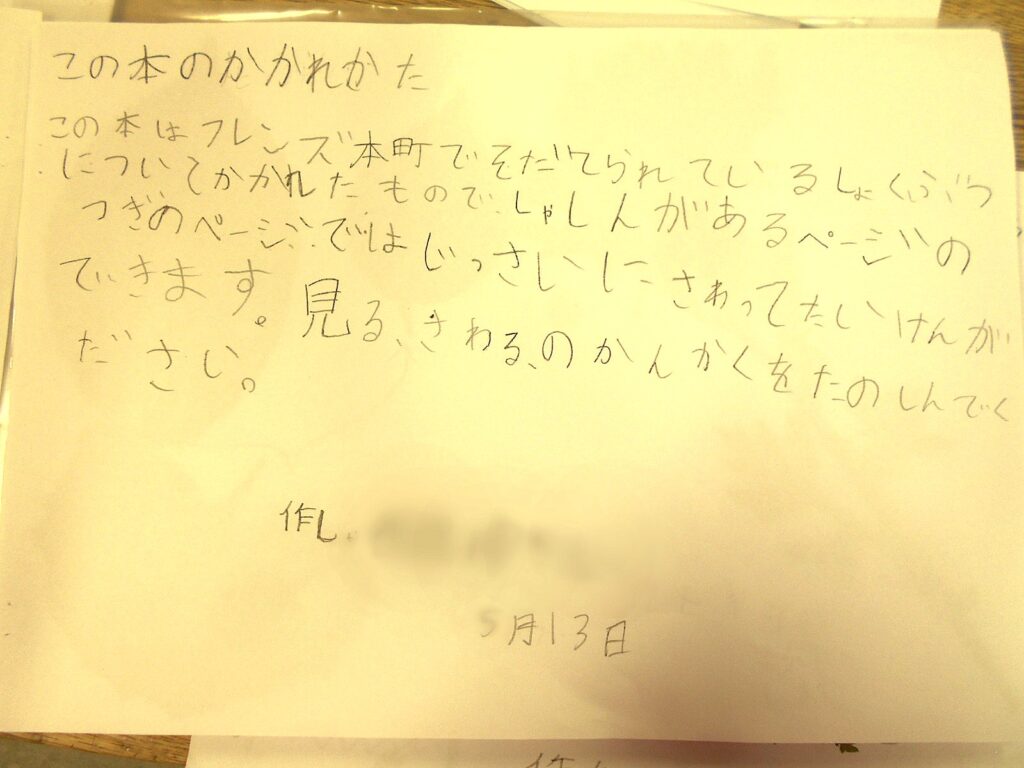 この本のかかれかた
この本はフレンズ本町でそだてられているしょくぶつ
についてかかれたもので、しゃしんがあるページの
つぎのページではじっさいにさわってたいけんが
できます。見る、さわる、のかんかくをたのしんでく
ださい。
作し
5月13日